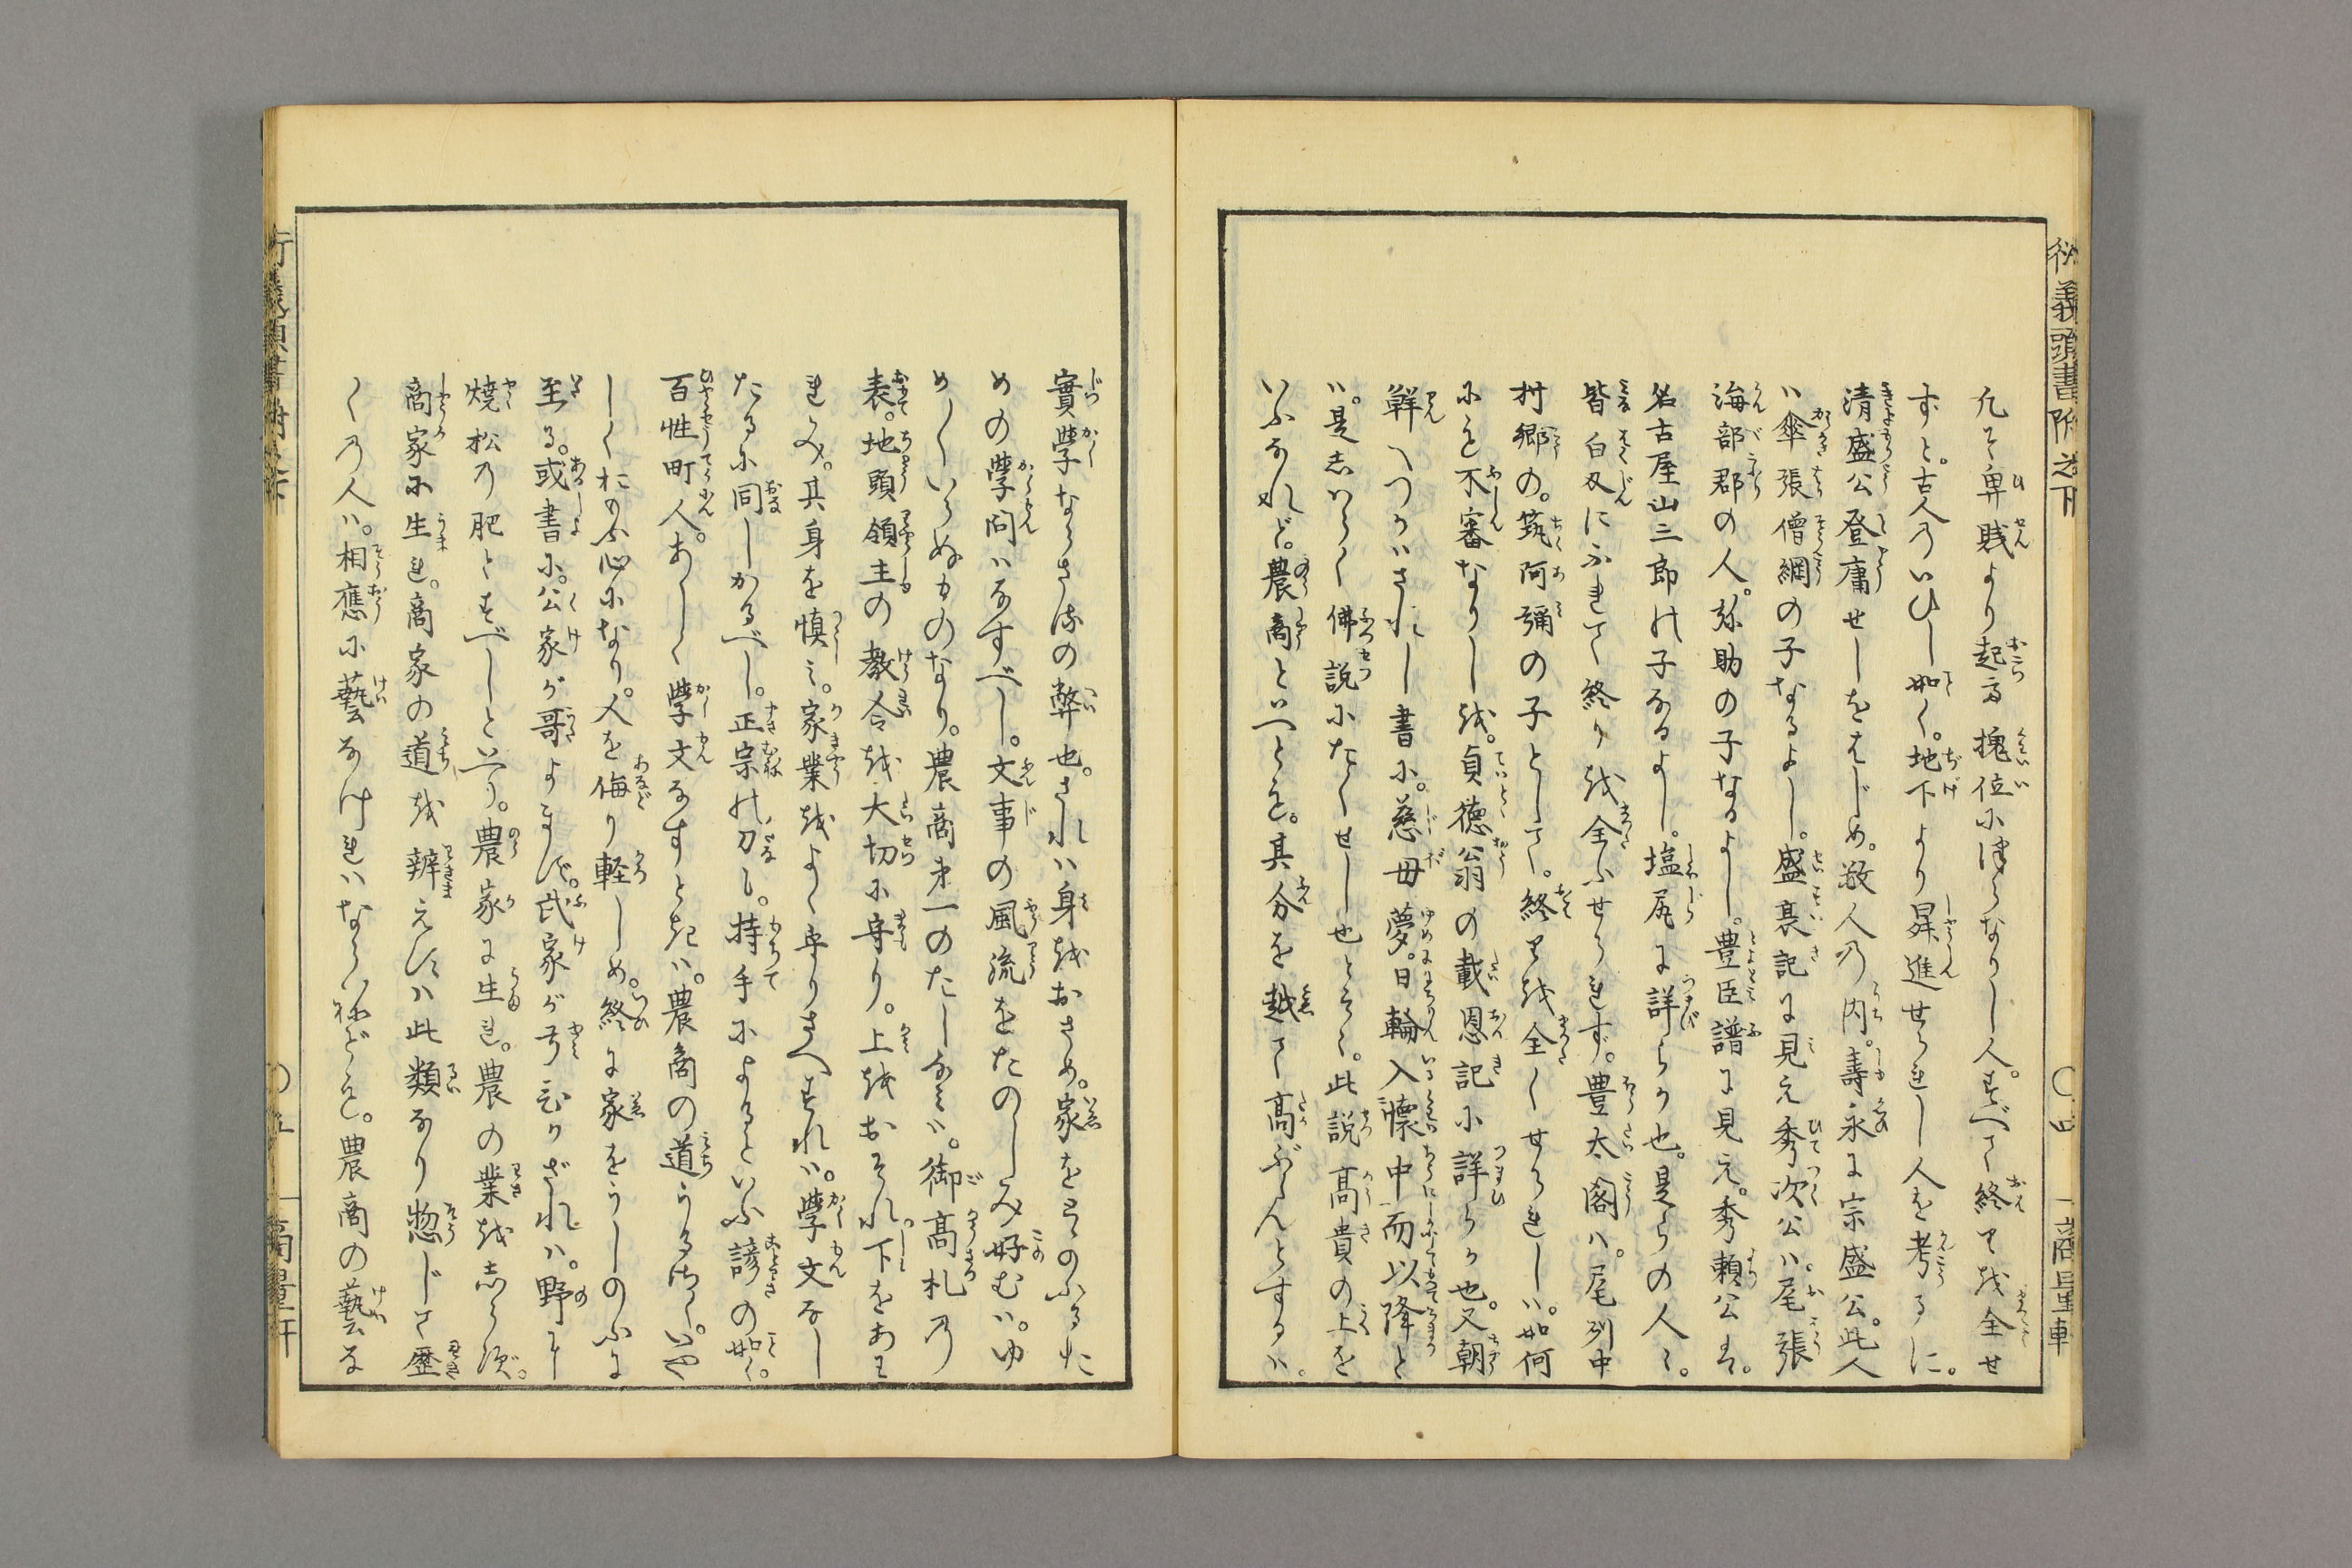 凡そ卑賤より起て槐位にほらなりし人。すべて終りを全せ
ずと。古人のいひし如く。地下より昇進せられし人を考るに。
清盛公登庸せしをはじめ。敵人の内。壽永に宗盛公。此人
ハ傘張僧綱の子なるよし。盛衰記に見え秀次公ハ。尾張
海部郡の人。弥助の子なるよし。豊臣譜に見え。秀頼公は。
名古屋山三郎の子なるよし。塩尻に詳らか也。是らの人々。
皆白刄にふれて終りを全ふせられず。豊太閤ハ。尾列中
村郷の。筑阿彌の子として。終りを全くせられしハ。如何
にも不審なりしを。貞徳翁の載恩記に詳らか也。又朝
鮮へつかハされし書に。慈母夢。日輪入懐中而以降と
ハ。是志ハらく佛説になくせし也とそ。此説高貴の上を
いふなれど。農商といへとも。其分を越て高ぶらんとするハ。
実學ならさるの弊也。されハ身をおさめ。家をとゝのふるた
めの學問ハなすべし。文事の風流をたのしみ好むハ。ゆ
めくいらぬものなり。農商第一のたしなミハ。御高札の
表。地頭領主の教令を大切に守り。上をおそれ。下をあは
れみ。其身を慎ミ。家業をよく守りさへすれハ。學文なし
たるに同しかるべし。正宗の刀も。持手によるといふ諺の如く。
百性町人。あしく學文なすときハ。農商の道うるさく。いや
しくおもふ心になり。人を侮り軽しめ。終に家をうしのふに
至る。或書に。公家が哥よまず。武家が弓取りざれハ。野に
焼松の肥とすべしと云り。農家に生れ。農の業をしらず。
商家に生れ。商家の道を辨えざるハ此類なり惣じて歴
〱の人ハ。相應に藝なけれハならねども。農商の藝な